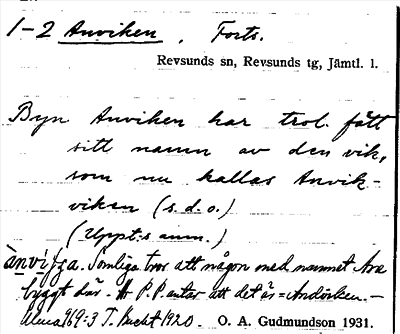 1-2 Anviken. Forts.
Revsunds sn, Revsunds tg, Jämtl. l.
Byn Anviken har trol. fått
sitt namn av den vik,
som nu kallas Anvik-
viken (s.d.o.)
(Uppt:s anm.)
Somliga tror att någon med namnet Are
byggt där. P.P. antar att det är =
969:3 T. Bucht 1920. O. A. Gudmundson 1931.